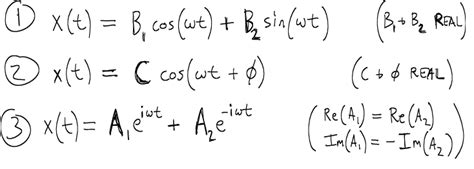 ① x(t) = B₁ cos(ωt) + B₂ sin(ωt) (B₁ + B₂ REAL)
② x(t) = C cos(ωt + ϕ) (C + ϕ REAL)
③ x(t) = A₁e^{iωt} + A₂e^{-iωt} (Re(A₁) = Re(A₂)
Im(A₁) = -Im(A₂))